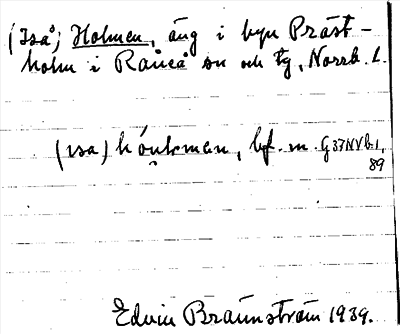 (Iså; Holmen, äng i byn Präst-
holm i Råneå sn och tg, Norrb. l.
(ɩsa) 
bf. m. G 37 NVb. 1,
89
Edvin Brännström 1939.